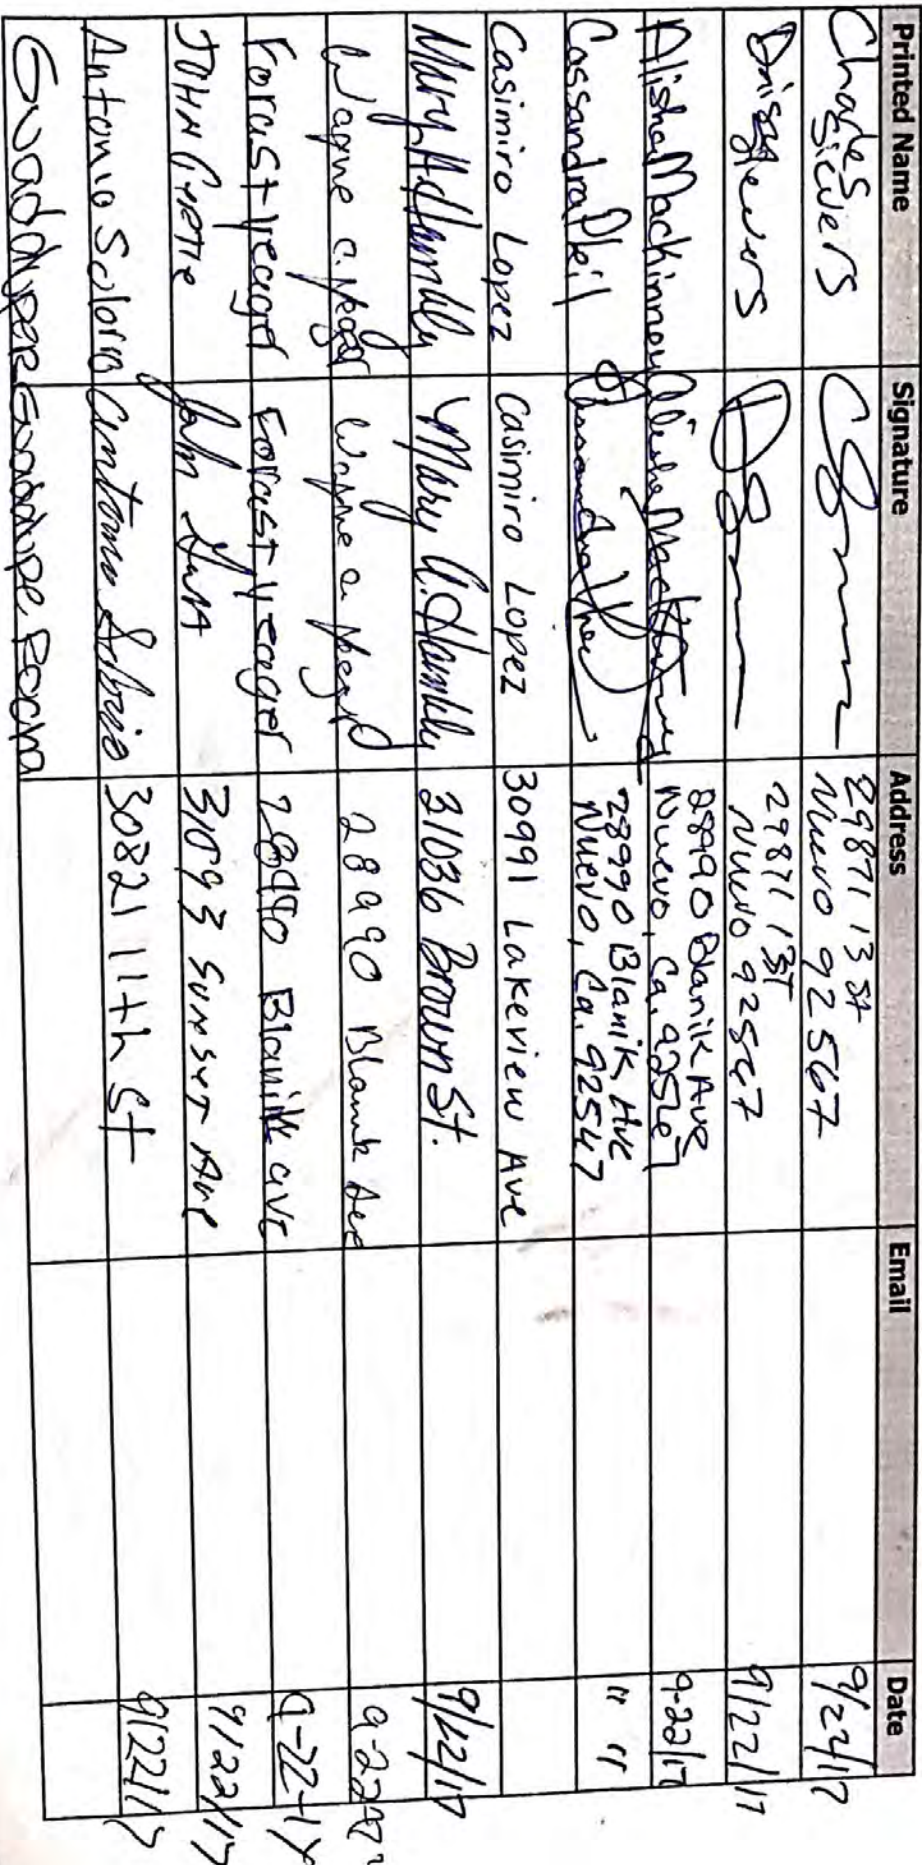 Printed Name Signature Address Email Date
Chade Sievers 29871 13 St
Nuevo 92567 9/22/17
29871 13 ST
Nuevo 92567 9/22/17
Alisha Mackinnon 28990 Blanik Ave
Nuevo, Ca. 92567 9-22/17
Cassandra Pleil 28990 Blanik Ave
Nuevo, Ca. 92567 " "
Casimiro Lopez Casimiro Lopez 30991 Lakeview Ave
Mary A. Hambly Mary A. Hambly 31036 Brown St. 9/22/17
Wayne a. Wayne a 28990 Blanik Ave 9-22-17
Forast yeager Forast yeager 28990 Blanik ave 9-22-17
JOHN John 31093 Sunset Ave 9/22/17
Antonio Solorio Antonio Solorio 30821 11th St 9/22/17